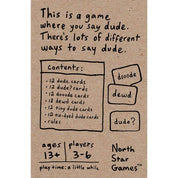 This is a game
where you say dude.
There's lots of different
ways to say dude.
Contents:
• 12 dude cards
• 12 dude? cards
• 12 dooode cards
• 12 dewd cards
• 12 tiny dude cards
• 12 cards
• rules
dooode
dewd
dude?
ages
13+
players
3-6
play time: a little while
North
Star
Games™